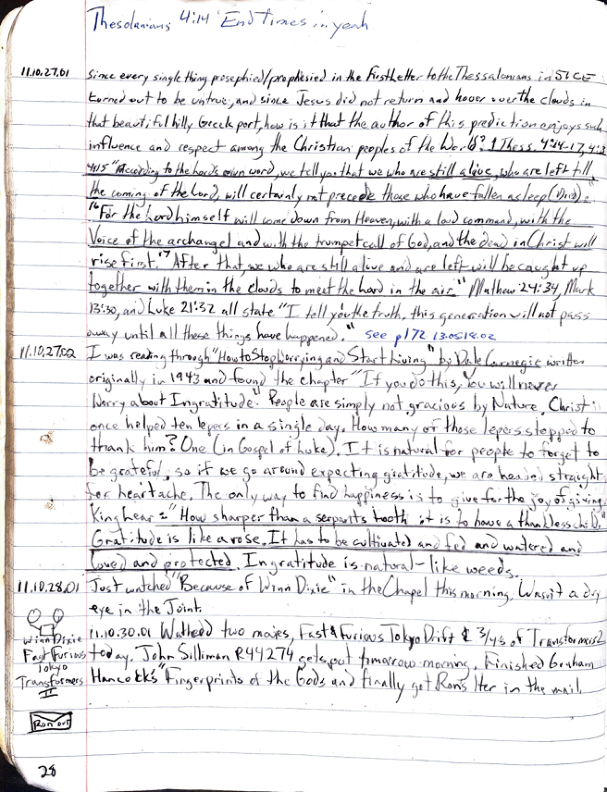 Thesolonians 4:14 "End Times"...yeah
11.10.27.01 Since every single thing prosephied/prophesied in the first letter to the Thessalonians in 51CE
turned out to be untrue, and since Jesus did not return and hover over the clouds in
that beautiful hilly Greek port, how is it that the author of this prediction enjoys such
influence and respect among the Christian peoples of the World? 1 Thess. 4:14-17, 4:3
4:15 "According to the Lord's own word, we tell you that we who are still alive, who are left till
the coming of the Lord, will certainly not precede those who have fallen asleep (Died)."
"16 For the Lord himself will come down from Heaven, with a loud command, with the
Voice of the archangel and with the trumpet call of God, and the dead in Christ will
rise first. 17 After that, we who are still alive and are left will be caught up
together with them in the clouds to meet the Lord in the air." Mathew 24:34, Mark
13:30, and Luke 21:32 all state "I tell you the truth, this generation will not pass
away until all these things have happened." see p172 13.05.18.02
11.10.27.02 I was reading through "How to Stop Worrying and Start Living" by Dale Carnegie written
originally in 1943 and found the chapter "If you do this, You will never
Worry about Ingratitude". People are simply not gracious by Nature, Christ
once helped ten lepers in a single day. How many of those lepers stopped to
thank him? One (in Gospel of Luke). It is natural for people to forget to
be grateful, so if we go around expecting gratitude, we are headed straight
for heartache. The only way to find happiness is to give for the joy of giving.
King Lear = "How sharper than a serpents tooth it is to have a thankless child"
Gratitude is like a rose. It has to be cultivated and fed and watered and
loved and protected. Ingratitude is natural - like weeds.
11.10.28.01 Just watched "Because of Winn Dixie" in the Chapel this morning. Wasn't a dry
eye in the Joint.
11.10.30.01 Watched two movies, Fast & Furious Tokyo Drift & 3/4s of Transformers 2
today. John Silliman R44274 gets out tomorrow morning. Finished Graham
Hancock's "Fingerprints of the Gods and finally got Ron's lter in the mail.
Winn Dixie
Fast Furious
Tokyo
Transformers
II
Ron out
28